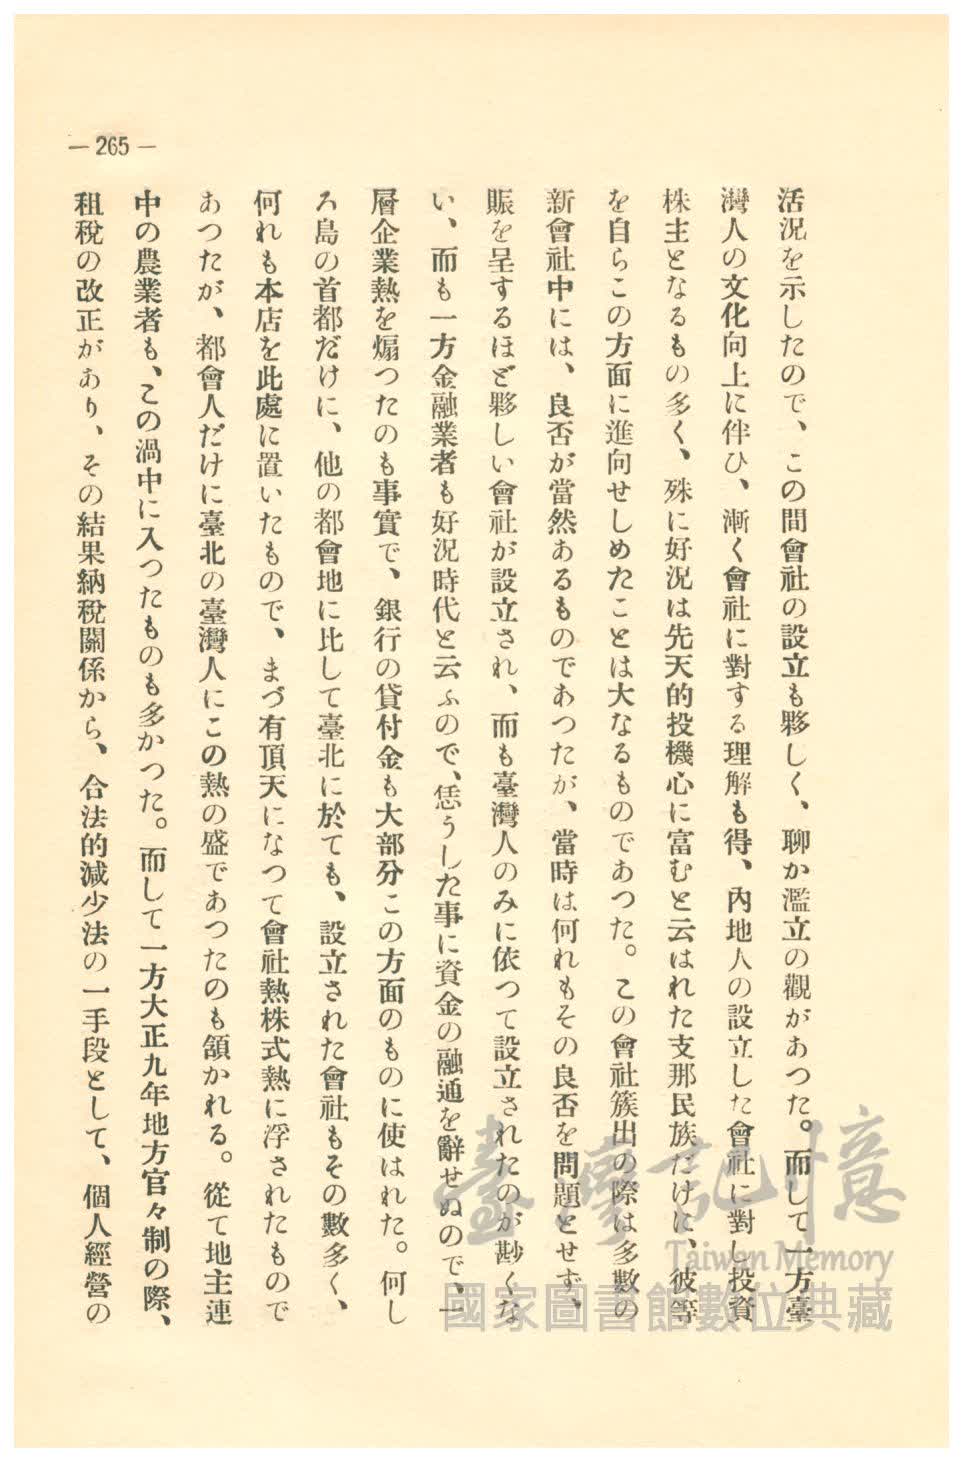 — 265 —
活況を示したので、この間會社の設立も夥しく、聊か濫立の觀があつた。而して一方臺
灣人の文化向上に伴ひ、漸く會社に對する理解も得、內地人の設立した會社に對し投資
株主となるもの多く、殊に好況は先天的投機心に富むと云はれた支那民族だけに、彼等
を自らこの方面に進向せしめたことは大なるものであつた。この會社簇出の際は多數の
新會社中には、良否が當然あるものであつたが、當時は何れもその良否を問題とせず、
賑を呈するほど夥しい會社が設立され、而も臺灣人のみに依つて設立されたのが尠くな
い、而も一方金融業者も好況時代と云ふので、恁うした事に資金の融通を辭せぬので、一
層企業熱を煽つたのも事實で、銀行の貸付金も大部分この方面のものに使はれた。何し
ろ島の首都だけに、他の都會地に比して臺北に於ても、設立された會社もその數多く、
何れも本店を此處に置いたもので、まづ有頂天になつて會社熱株式熱に浮されたもので
あつたが、都會人だけに臺北の臺灣人にこの熱の盛であつたのも頷かれる。從て地主連
中の農業者も、この渦中に入つたものも多かつた。而して一方大正九年地方官々制の際、
租稅の改正があり、その結果納稅關係から、合法的減少法の一手段として、個人經營の
臺灣記憶
Taiwan Memory
國家圖書館數位典藏